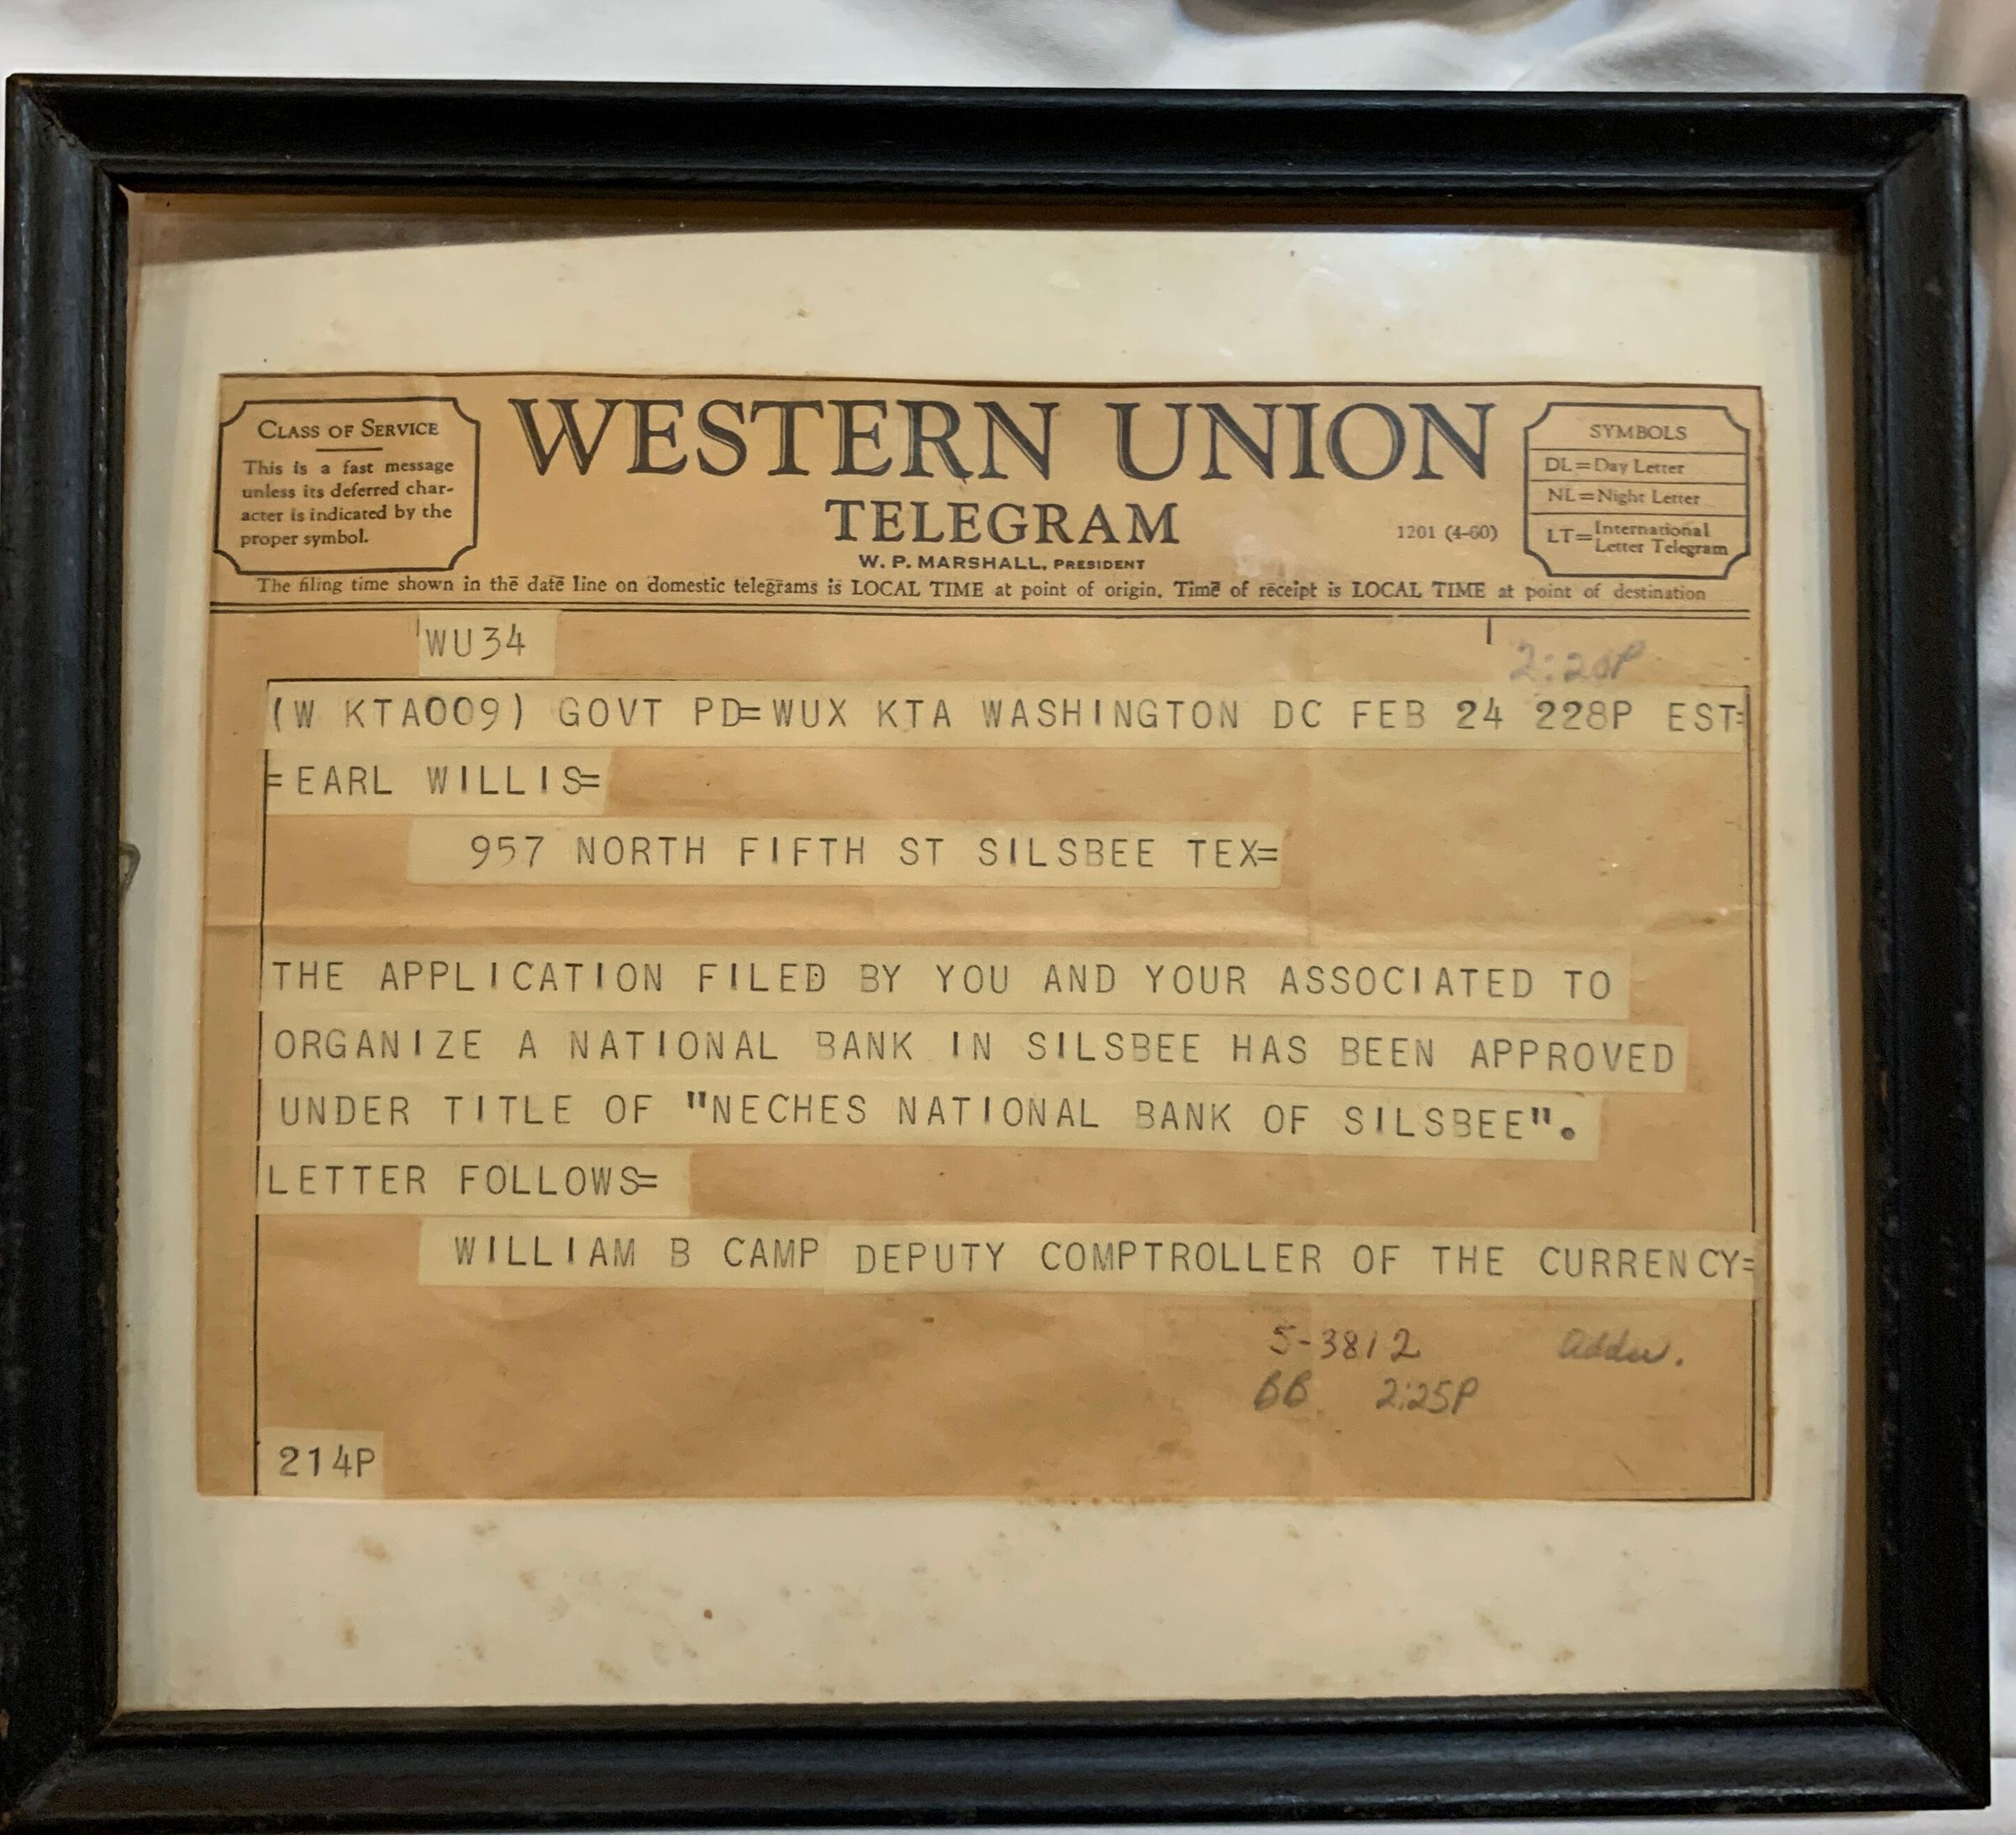 CLASS OF SERVICE
This is a fast message
unless its deferred char-
acter is indicated by the
proper symbol.
WESTERN UNION
TELEGRAM
W. P. MARSHALL, PRESIDENT
1201 (4-60)
SYMBOLS
DL=Day Letter
NL=Night Letter
LT=International
Letter Telegram
The filing time shown in the date line on domestic telegrams is LOCAL TIME at point of origin. Time of receipt is LOCAL TIME at point of destination
WU34
(W KTA009) GOVT PD=WUX KTA WASHINGTON DC FEB 24 228P EST=
=EARL WILLIS=
957 NORTH FIFTH ST SILSBEE TEX=
THE APPLICATION FILED BY YOU AND YOUR ASSOCIATED TO
ORGANIZE A NATIONAL BANK IN SILSBEE HAS BEEN APPROVED
UNDER TITLE OF "NECHES NATIONAL BANK OF SILSBEE".
LETTER FOLLOWS=
WILLIAM B CAMP DEPUTY COMPTROLLER OF THE CURRENCY=
5-3812
BB 2:25P
214P